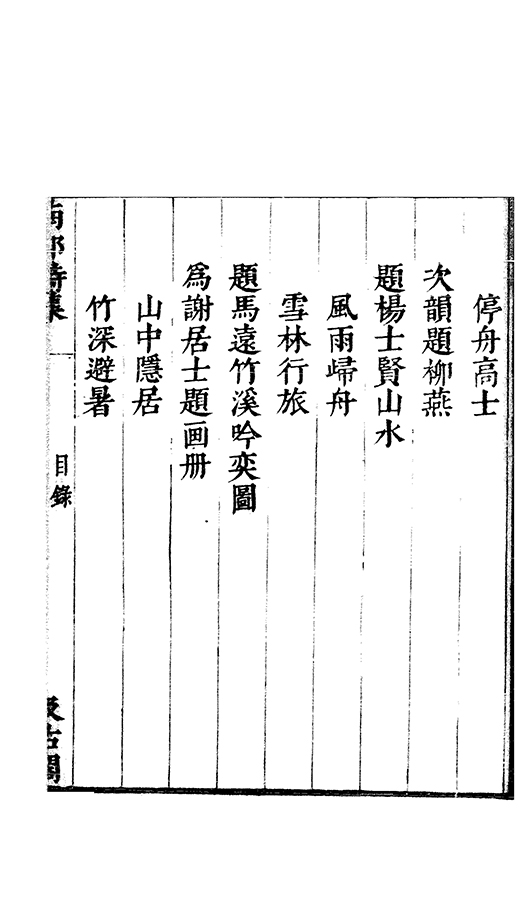 停舟高士
次韻題柳燕
題楊士賢山水
風雨歸舟
雪林行旅
題馬遠竹溪吟奕圖
為謝居士題画册
山中隱居
竹深避暑
目錄
汲古閣